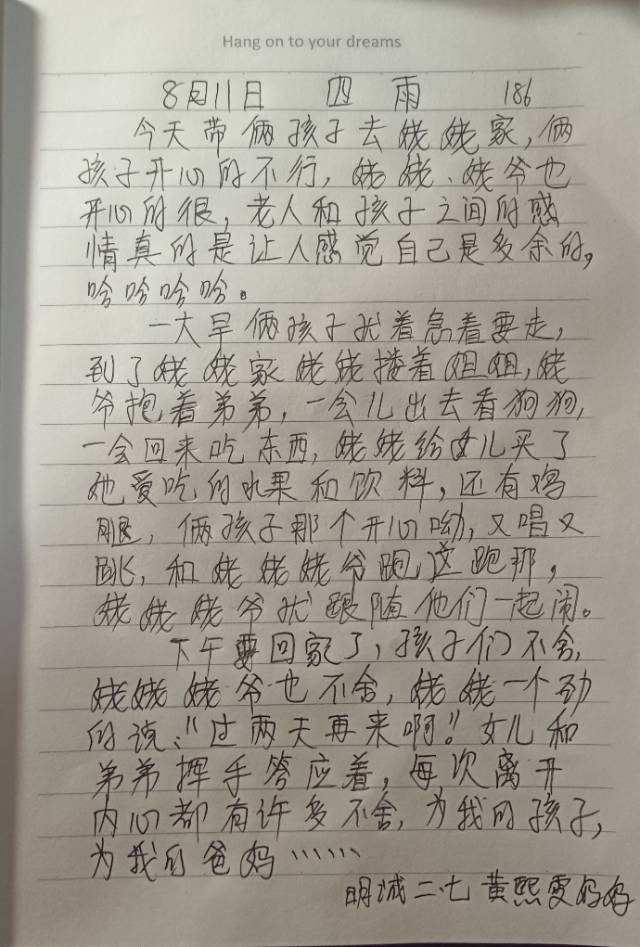 Hang on to your dreams
8月11日 四 雨 186
今天带俩孩子去姥姥家,俩
孩子开心的不行,姥姥、姥爷也
开心的很,老人和孩子之间的感
情真的是让人感觉自己是多余的,
哈哈哈哈。
一大早俩孩子扰着急着要走,
到了姥姥家姥姥搂着姐姐,姥
爷抱着弟弟,一会儿出去看狗狗,
一会回来吃东西,姥姥给女儿买了
她爱吃的水果和饮料,还有鸡
腿,俩孩子那个开心呦,又唱又
跳,和姥姥姥爷跑这跑那,
姥姥姥爷扰跟随他们一起闹。
下午要回家了,孩子们不舍,
姥姥姥爷也不舍,姥姥一个劲
的说:"过两天再来啊!"女儿和
弟弟挥手答应着,每次离开
内心都有许多不舍,为我的孩子,
为我的爸妈……
明诚二·七 黄熙雯妈妈